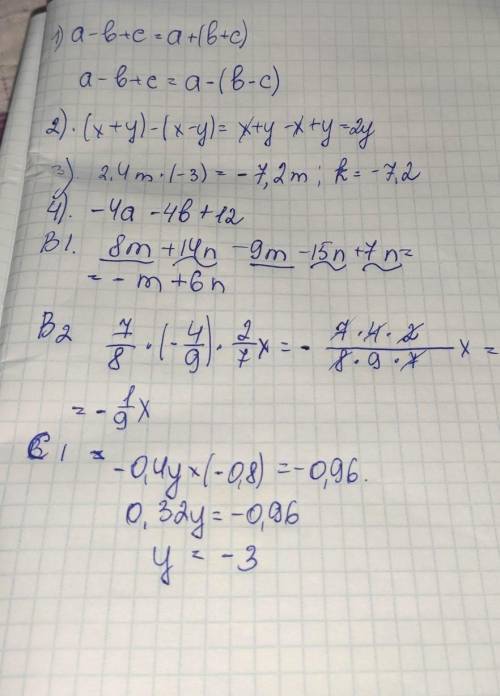 1) a-в+c = a+(в+c)
a-в+c = a-(в-c)
2). (x+y)-(x-y)= x+y-x+y=2y
3). 2.4m·(-3) = -7,2m; k=-7,2
4). -4a -4в+12
B1. 8m+14n -9m -15n+7n=
= -m+6n
B2 7/8·(-4/9)·2/7x = - 7·4·2/8·9·7 x =
= -1/9x
C1 -0,4y×(-0,8) =-0,96.
0,32y=-0,96
y = -3